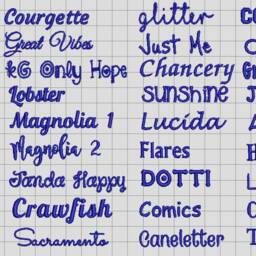 Courgette
Great Vibes
KG Only Hope
Lobster
Magnolia 1
Magnolia 2
Janda Happy
Crawfish
Sacramento
glitter
Just Me
Chancery
sunshine
Lucida
Flares
DOTTI
Comics
Caneletter